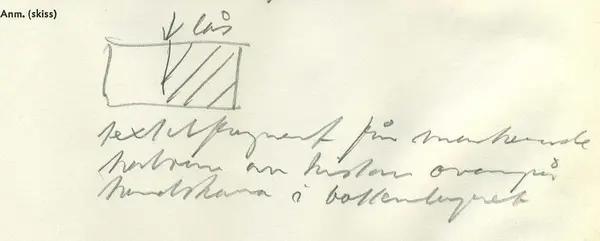 Anm. (skiss)
lås
textilfragment från markerade
halvan av kistan ovanpå
handskarna i bottenlagret